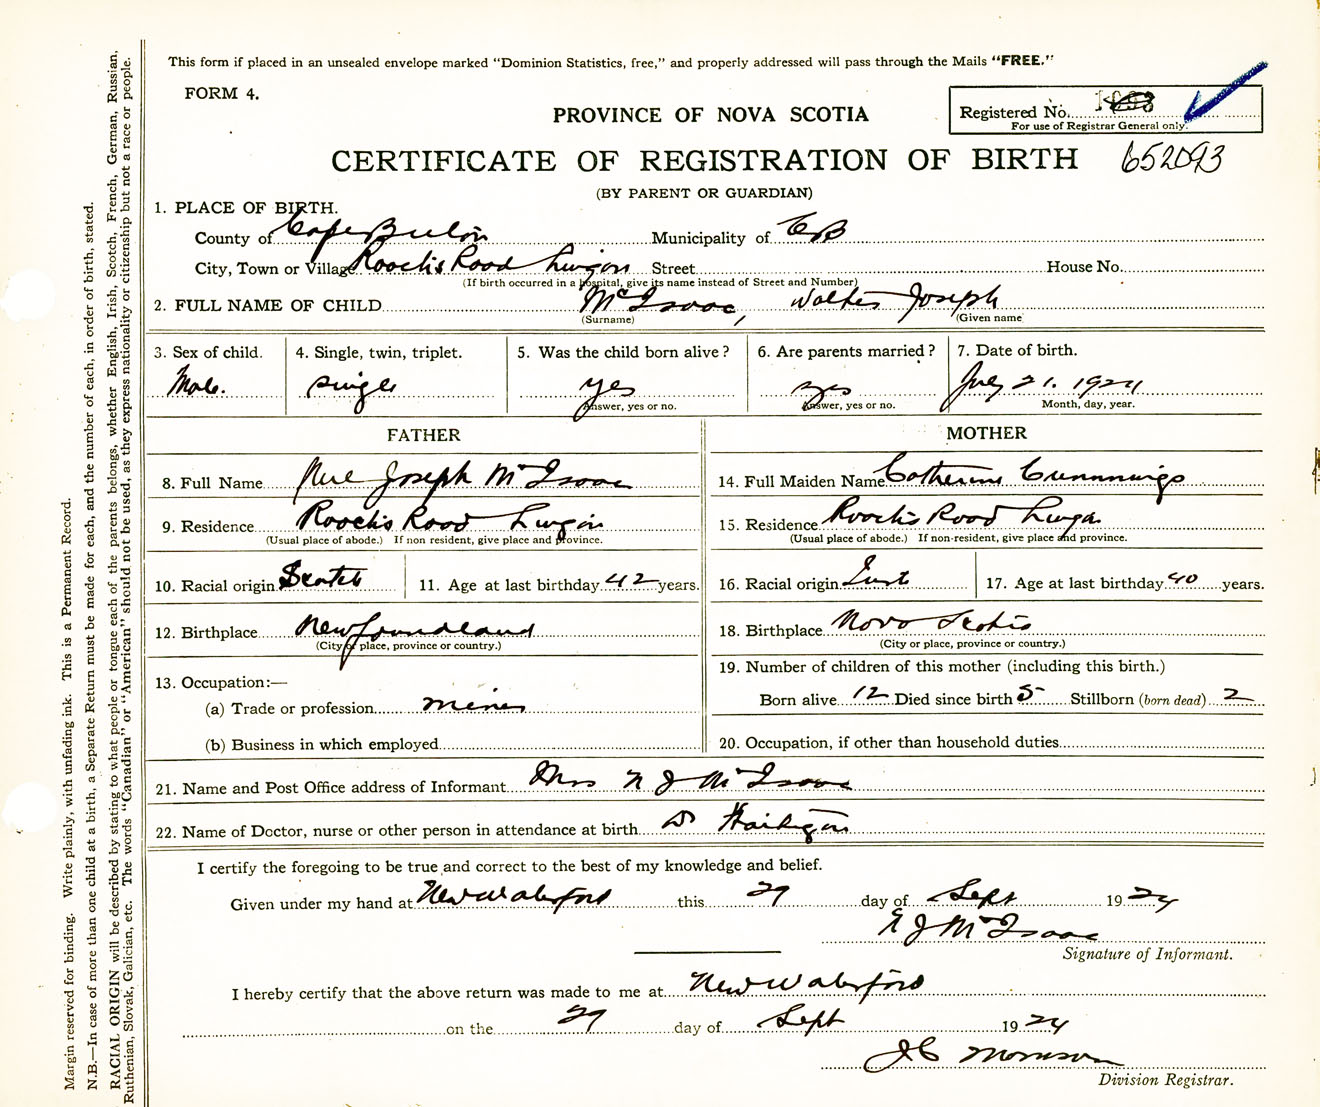 This form if placed in an unsealed envelope marked "Dominion Statistics, free," and properly addressed will pass through the Mails "FREE."
FORM 4.
PROVINCE OF NOVA SCOTIA
Registered No.
For use of Registrar General only.
CERTIFICATE OF REGISTRATION OF BIRTH 652093
(BY PARENT OR GUARDIAN)
1. PLACE OF BIRTH.
County of Cape Breton Municipality of C B
City, Town or Village Road Lingan Street House No.
(If birth occurred in a hospital, give its name instead of Street and Number)
2. FULL NAME OF CHILD McIsaac, Walter Joseph
(Surname) (Given name)
3. Sex of child. 4. Single, twin, triplet. 5. Was the child born alive? 6. Are parents married? 7. Date of birth.
Male. single yes yes July 21. 1924
Answer, yes or no. Answer, yes or no. Month, day, year.
FATHER MOTHER
8. Full Name Neil Joseph McIsaac 14. Full Maiden Name Catherine Cummings
9. Residence Road Lingan 15. Residence Road Lingan
(Usual place of abode.) If non resident, give place and province. (Usual place of abode.) If non-resident, give place and province.
10. Racial origin Scotch 11. Age at last birthday 42 years. 16. Racial origin 17. Age at last birthday 40 years.
12. Birthplace Newfoundland 18. Birthplace Nova Scotia
(City or place, province or country.) (City or place, province or country.)
13. Occupation:— 19. Number of children of this mother (including this birth.)
(a) Trade or profession miner Born alive 12 Died since birth 5 Stillborn (born dead) 2
(b) Business in which employed 20. Occupation, if other than household duties
21. Name and Post Office address of Informant Mrs N J McIsaac
22. Name of Doctor, nurse or other person in attendance at birth Dr
I certify the foregoing to be true and correct to the best of my knowledge and belief.
Given under my hand at New Waterford this 29 day of Sept 1924
N J McIsaac
Signature of Informant.
I hereby certify that the above return was made to me at New Waterford
on the 29 day of Sept 1924
J C Morrison
Division Registrar.
Margin reserved for binding. Write plainly, with unfading ink. This is a Permanent Record.
N.B.—In case of more than one child at a birth, a Separate Return must be made for each, and the number of each, in order of birth, stated.
RACIAL ORIGIN will be described by stating to what people or tongue each of the parents belongs, whether English, Irish, Scotch, French, German, Russian,
Ruthenian, Slovak, Galician, etc. The words "Canadian" or "American" should not be used, as they express nationality or citizenship but not a race or people.